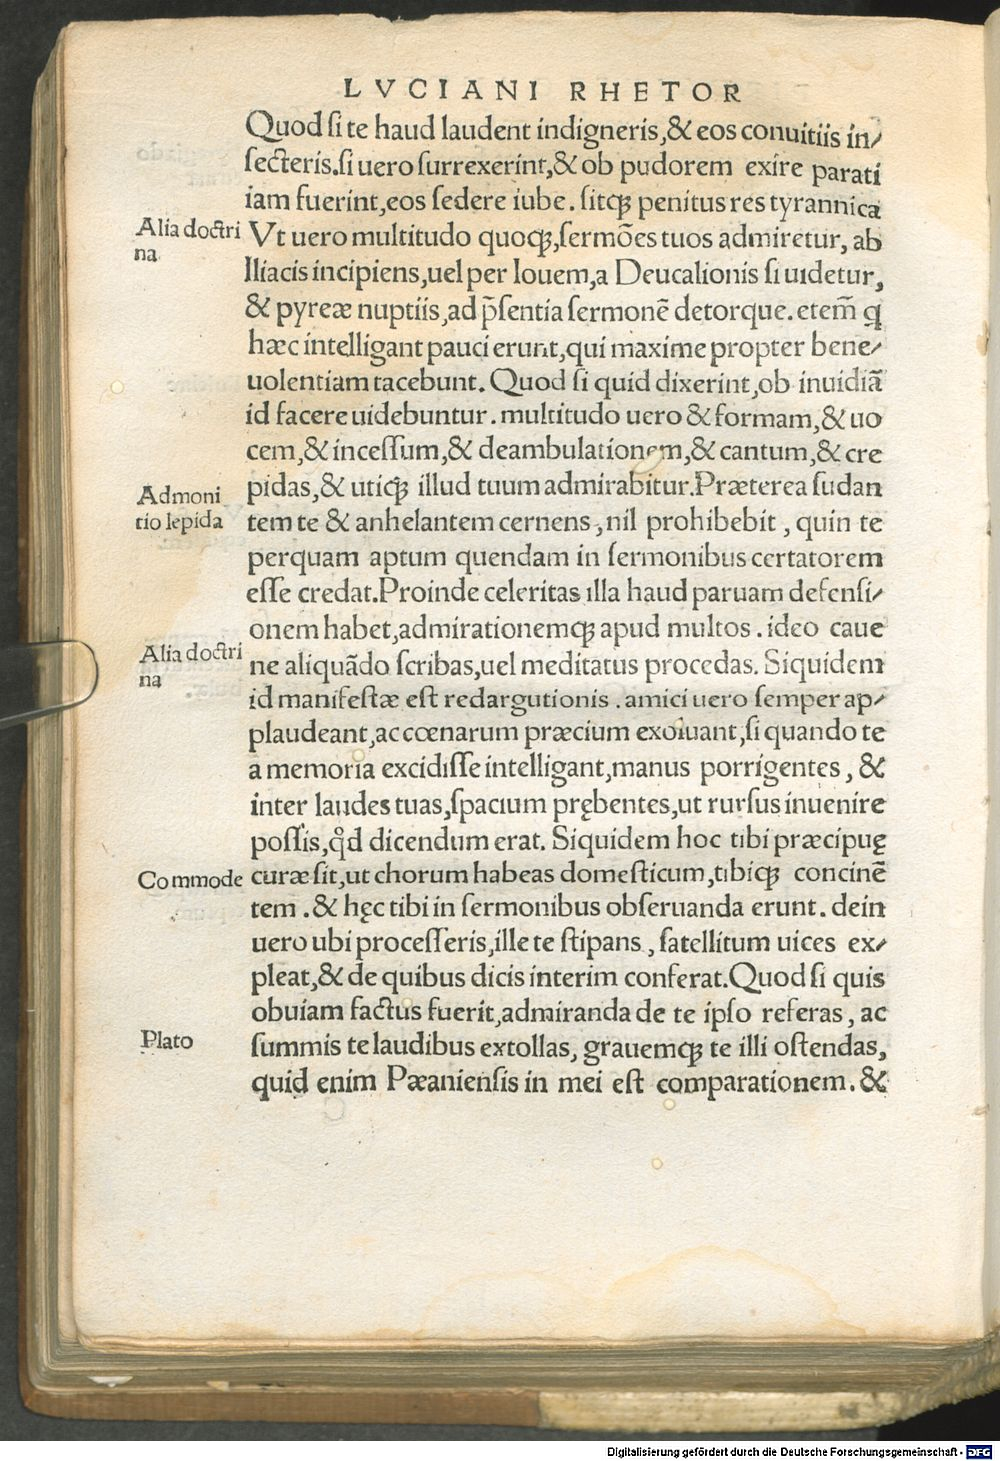 LVCIANI RHETOR
Quod ſi te haud laudent indigneris,& eos conuitiis in⸗
ſecteris.ſi uero ſurrexerint,& ob pudorem exire parati
iam fuerint,eos ſedere iube. ſitqꝫ penitus res tyrannica
Alia doctri
na
Vt uero multitudo quoqꝫ,ſermões tuos admiretur, ab
Iliacis incipiens,uel per Iouem,a Deucalionis ſi uidetur,
& pyreæ nuptiis,ad p̃ſentia ſermonẽ detorque. etem̃ ꝗ
hæc intelligant pauci erunt,qui maxime propter bene⸗
uolentiam tacebunt. Quod ſi quid dixerint,ob inuidiã
id facere uidebuntur. multitudo uero & formam,& uo
cem,& inceſſum,& deambulationem,& cantum,& cre
Admoni
tio lepida
pidas,& utiqꝫ illud tuum admirabitur.Præterea ſudan
tem te & anhelantem cernens, nil prohibebit, quin te
perquam aptum quendam in ſermonibus certatorem
eſſe credat.Proinde celeritas illa haud paruam defenſi⸗
onem habet,admirationemqꝫ apud multos. ideo caue
Alia doctri
na
ne aliquãdo ſcribas,uel meditatus procedas. Siquidem
id manifeſtæ eſt redargutionis. amici uero ſemper ap⸗
plaudeant,ac cœnarum præcium exoluant,ſi quando te
a memoria excidiſſe intelligant,manus porrigentes, &
inter laudes tuas,ſpacium prębentes,ut rurſus inuenire
poſſis,qd̕ dicendum erat. Siquidem hoc tibi præcipuę
Commode
curæ ſit,ut chorum habeas domeſticum,tibiqꝫ concinẽ
tem. & hęc tibi in ſermonibus obſeruanda erunt. dein
uero ubi proceſſeris,ille te ſtipans, ſatellitum uices ex⸗
pleat,& de quibus dicis interim conferat.Quod ſi quis
obuiam factus fuerit,admiranda de te ipſo referas, ac
Plato
ſummis te laudibus extollas, grauemqꝫ te illi oſtendas,
quid enim Pæanienſis in mei eſt comparationem. &
Digitalisierung gefördert durch die Deutsche Forschungsgemeinschaft - DFG